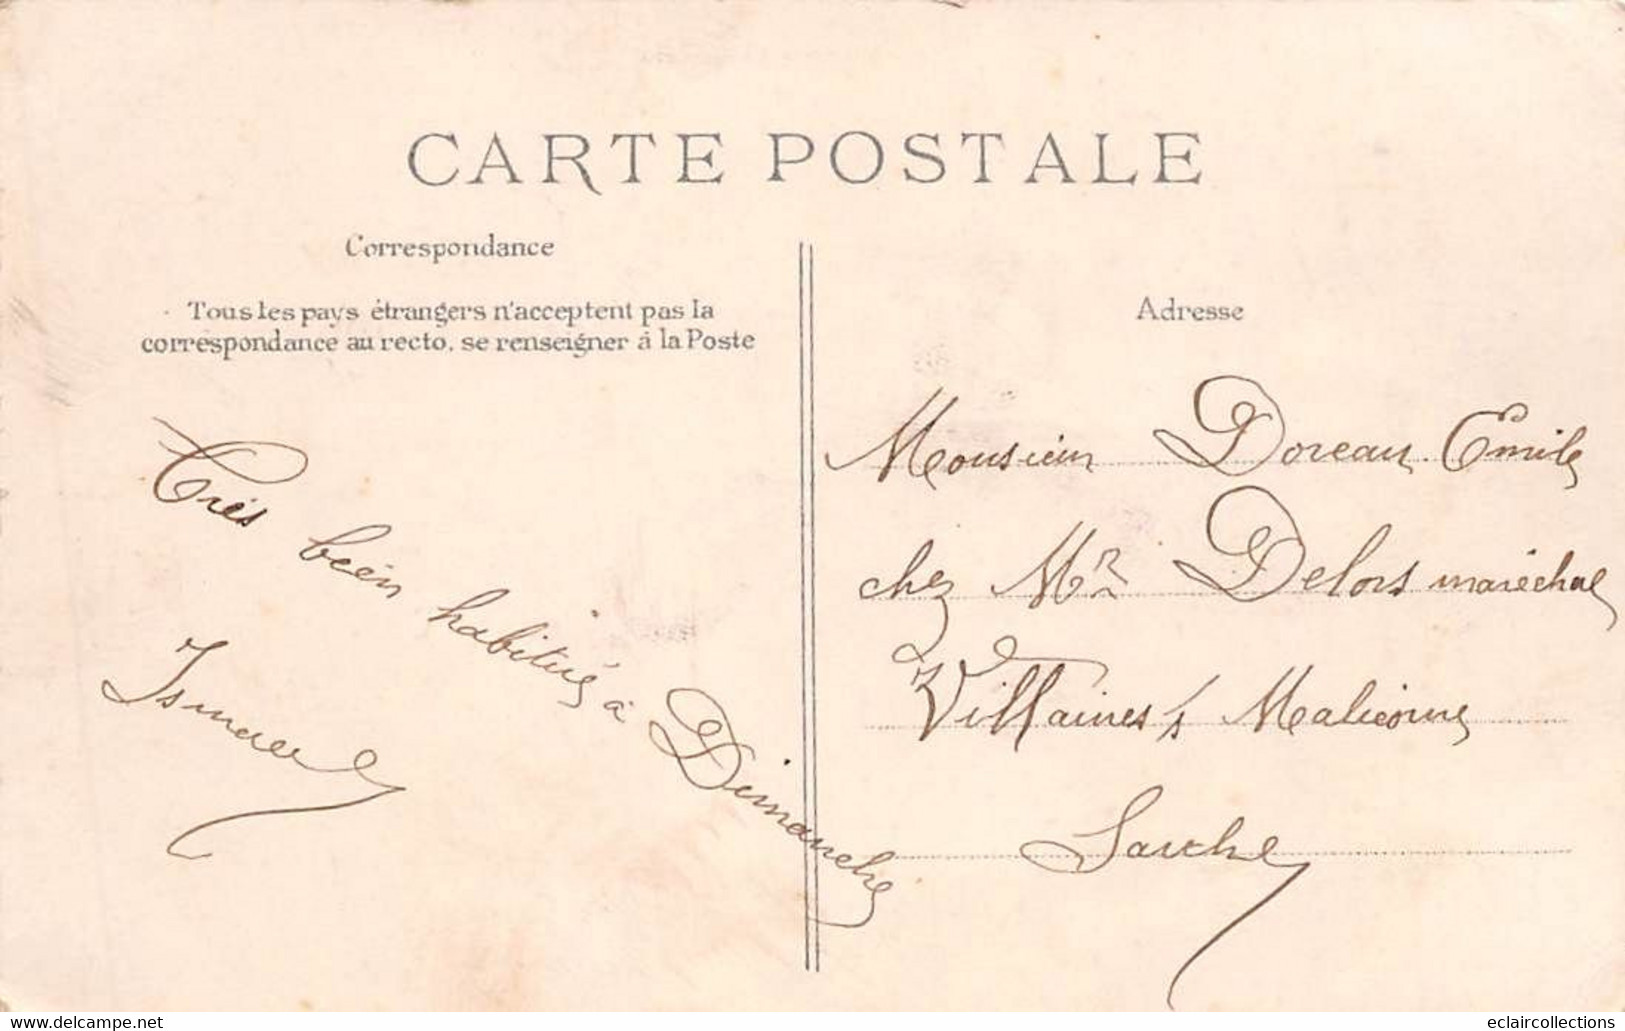 CARTE POSTALE
Correspondance
Tous les pays étrangers n'acceptent pas la
correspondance au recto, se renseigner à la Poste
Très bien habitué à Dimanche
Ismael
Adresse
Monsieur Doreau Emile
chez Mr Delors maréchal
Villaines s/ Malicorne
Sarthe
www.delcampe.net
eclaircollections